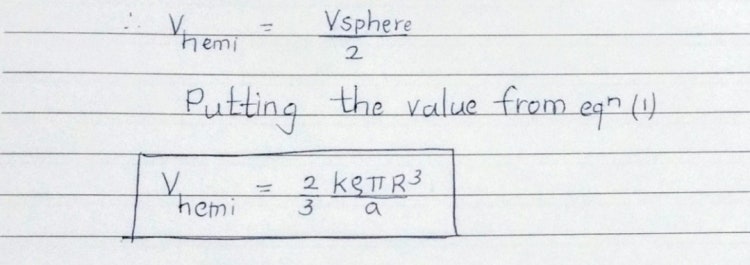 ∴ V_hemi = Vsphere/2
Putting the value from eqn (1)
V_hemi = 2/3 kρπR³/a